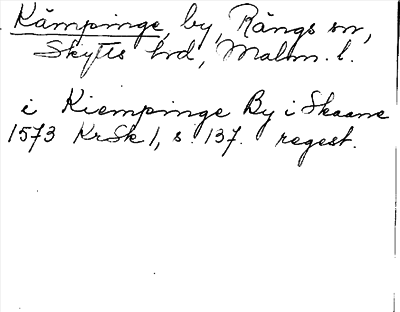 Kämpinge, by, Rängs sn,
Skytts hrd, Malm. l.
i Kiempinge By i Skaane
1573 KrSk 1, s. 137. regest.